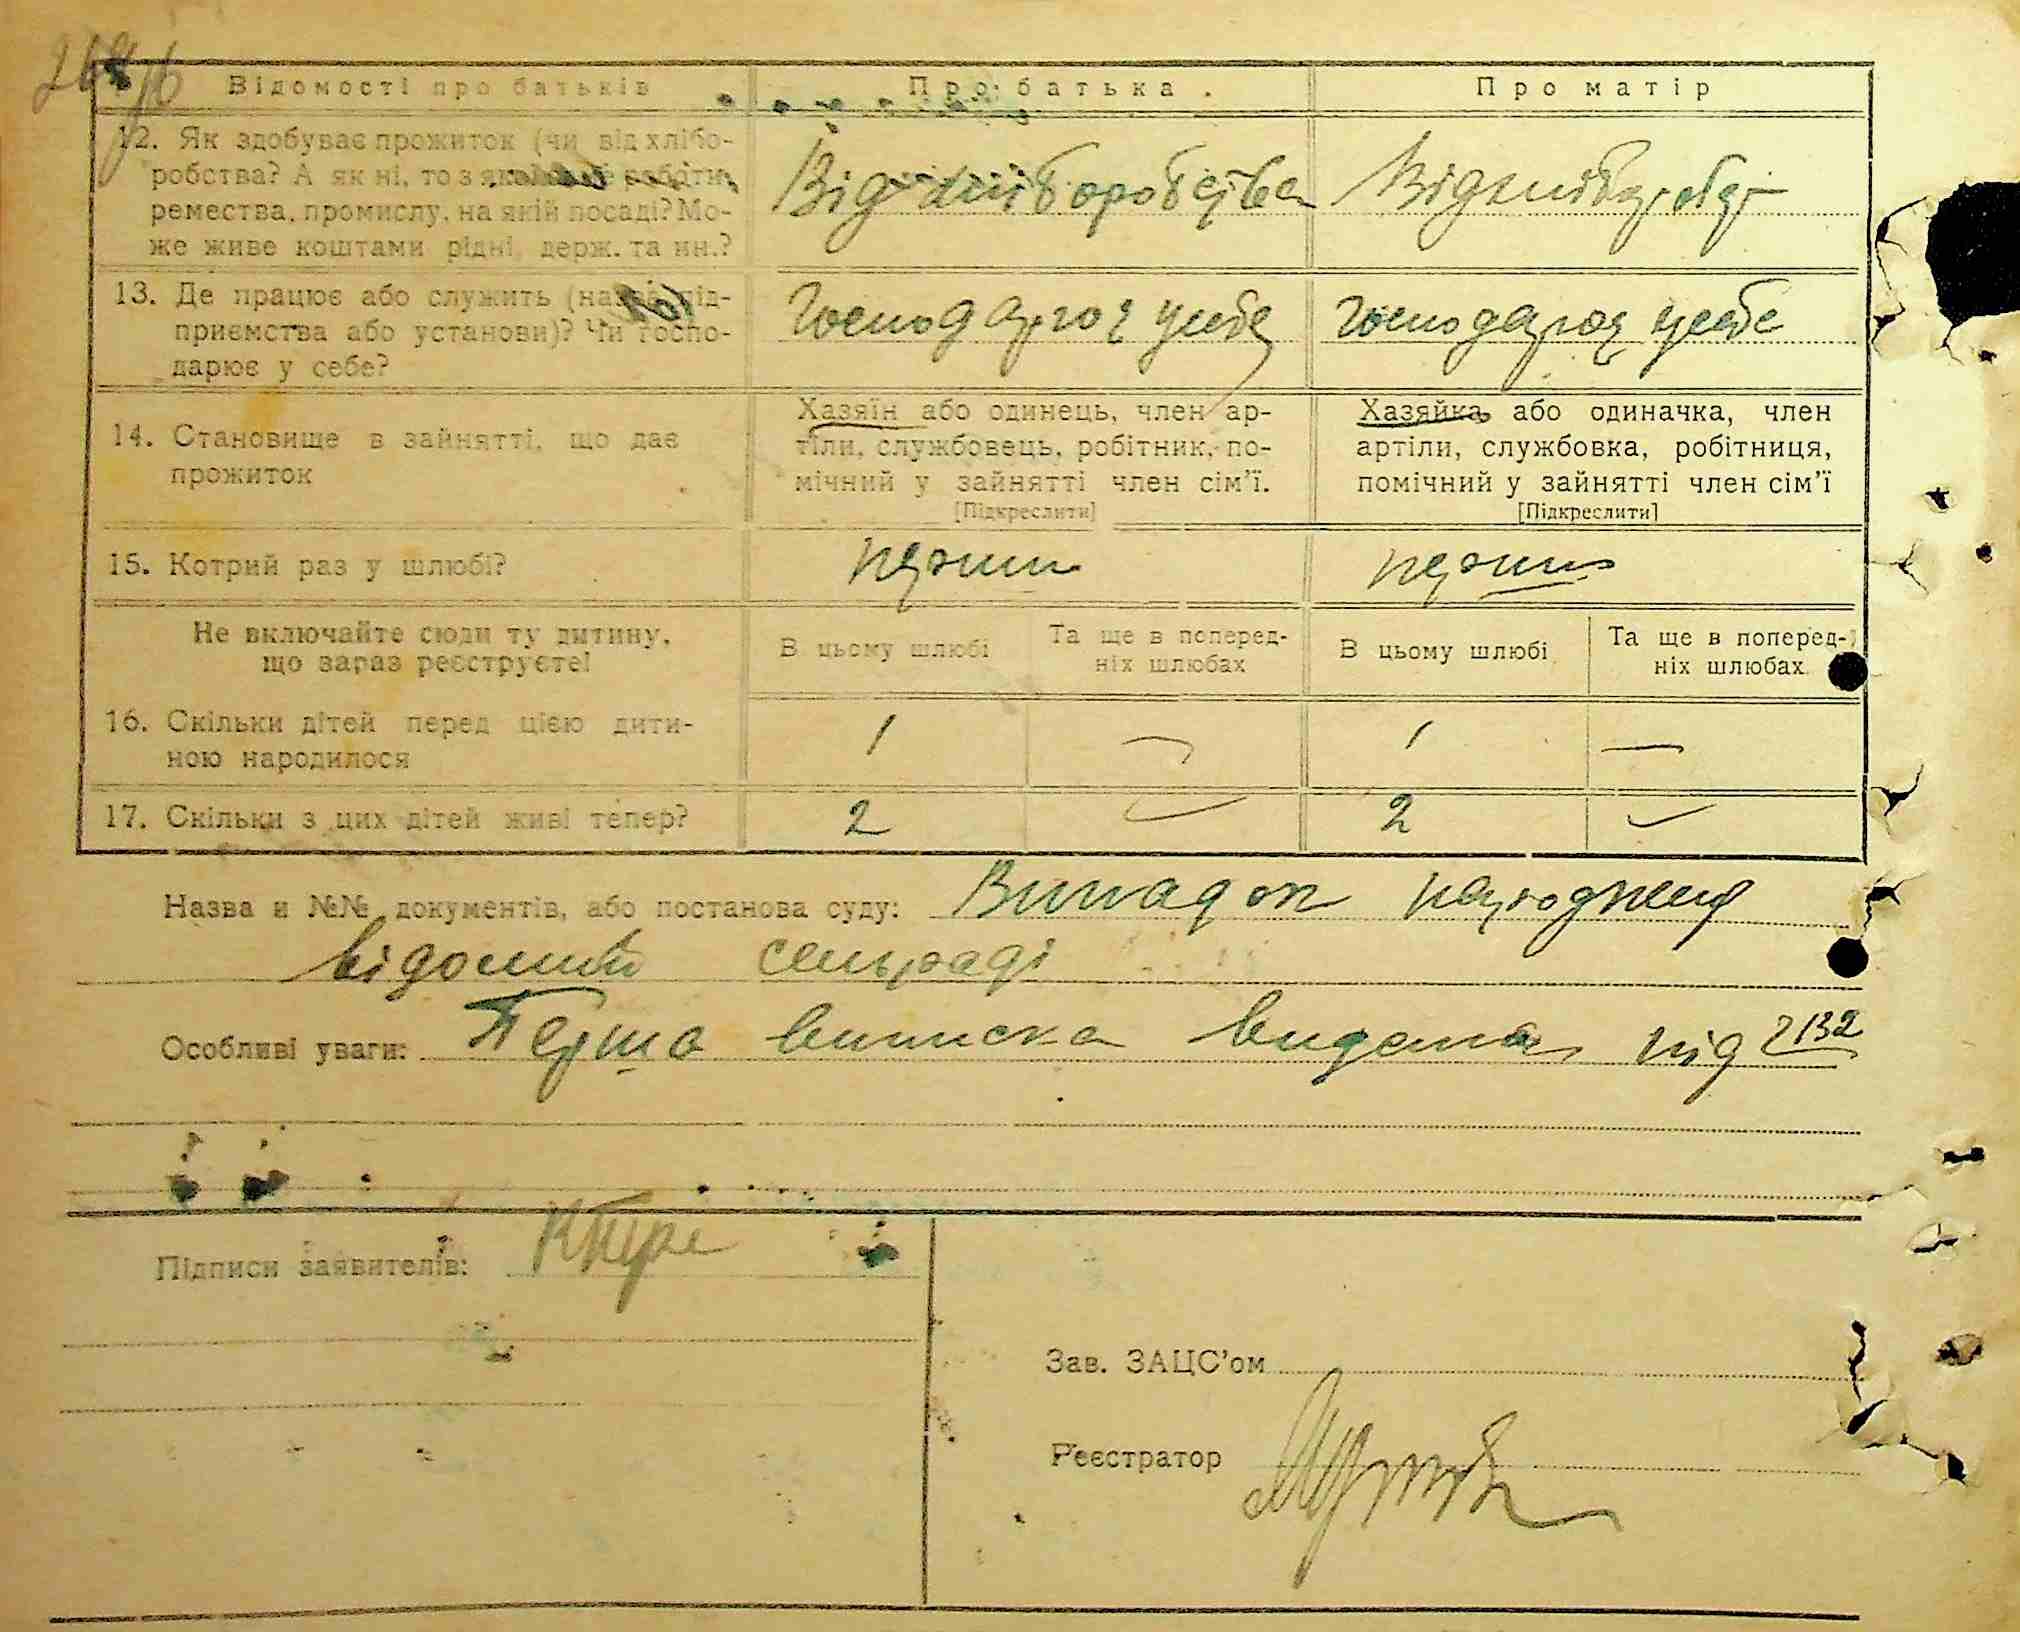 Відомості про батьків Про батька Про матір
12. Як здобуває прожиток (чи від хлібо-
робства? А як ні, то з якої роботи,
ремества, промислу, на якій посаді? Мо-
же живе коштами рідні, держ. та ин.?
Від хліборобства
Від
13. Де працює або служить (назва під-
приємства або установи)? Чи госпо-
дарює у себе?
Господарює у себе
Господарює у себе
14. Становище в зайнятті, що дає
прожиток
Хазяїн або одинець, член ар-
тіли, службовець, робітник, по-
мічний у зайнятті член сім'ї.
[Підкреслити]
Хазяйка або одиначка, член
артіли, службовка, робітниця,
помічний у зайнятті член сім'ї
[Підкреслити]
15. Котрий раз у шлюбі?
перший
перший
Не включайте сюди ту дитину,
що зараз реєструєте!
В цьому шлюбі
Та ще в поперед-
ніх шлюбах
В цьому шлюбі
Та ще в поперед-
ніх шлюбах
16. Скільки дітей перед цією дити-
ною народилося
1 — 1 —
17. Скільки з цих дітей живі тепер?
2 — 2 —
Назва и №№ документів, або постанова суду: Випадок народження
відомий сельраді
Особливі уваги: Перша виписка видана під 2132
Підписи заявителів:
Зав. ЗАЦС'ом
Реєстратор